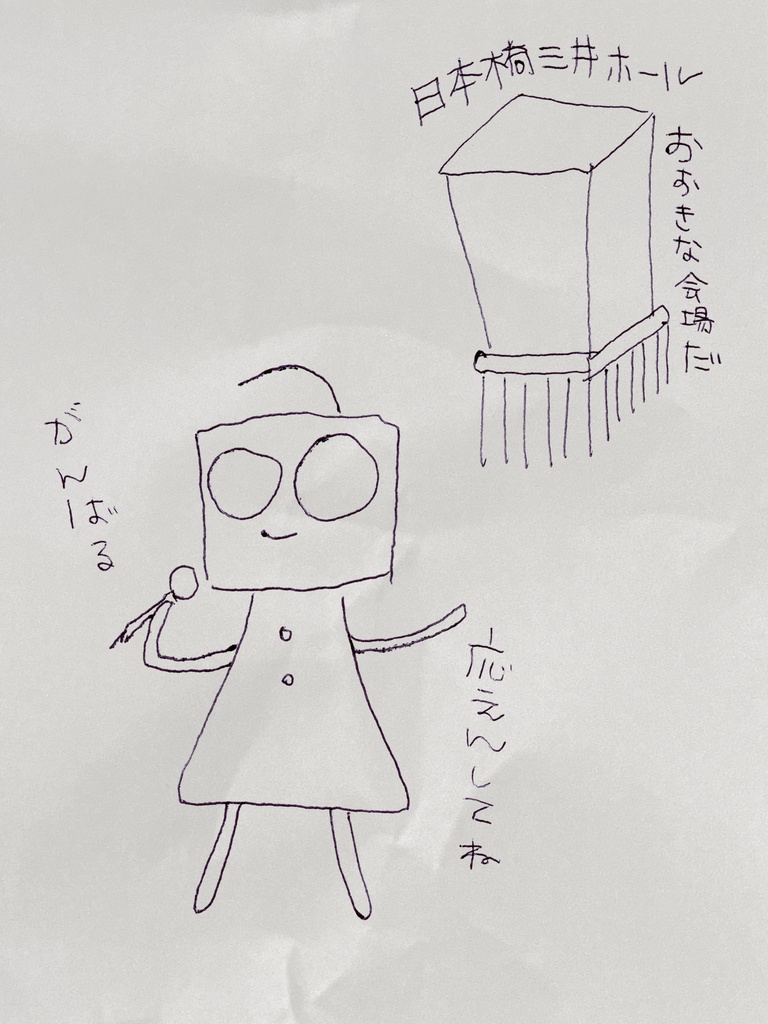 日本橋三井ホール
おおきな会場だ
がんばる
応えんしてね